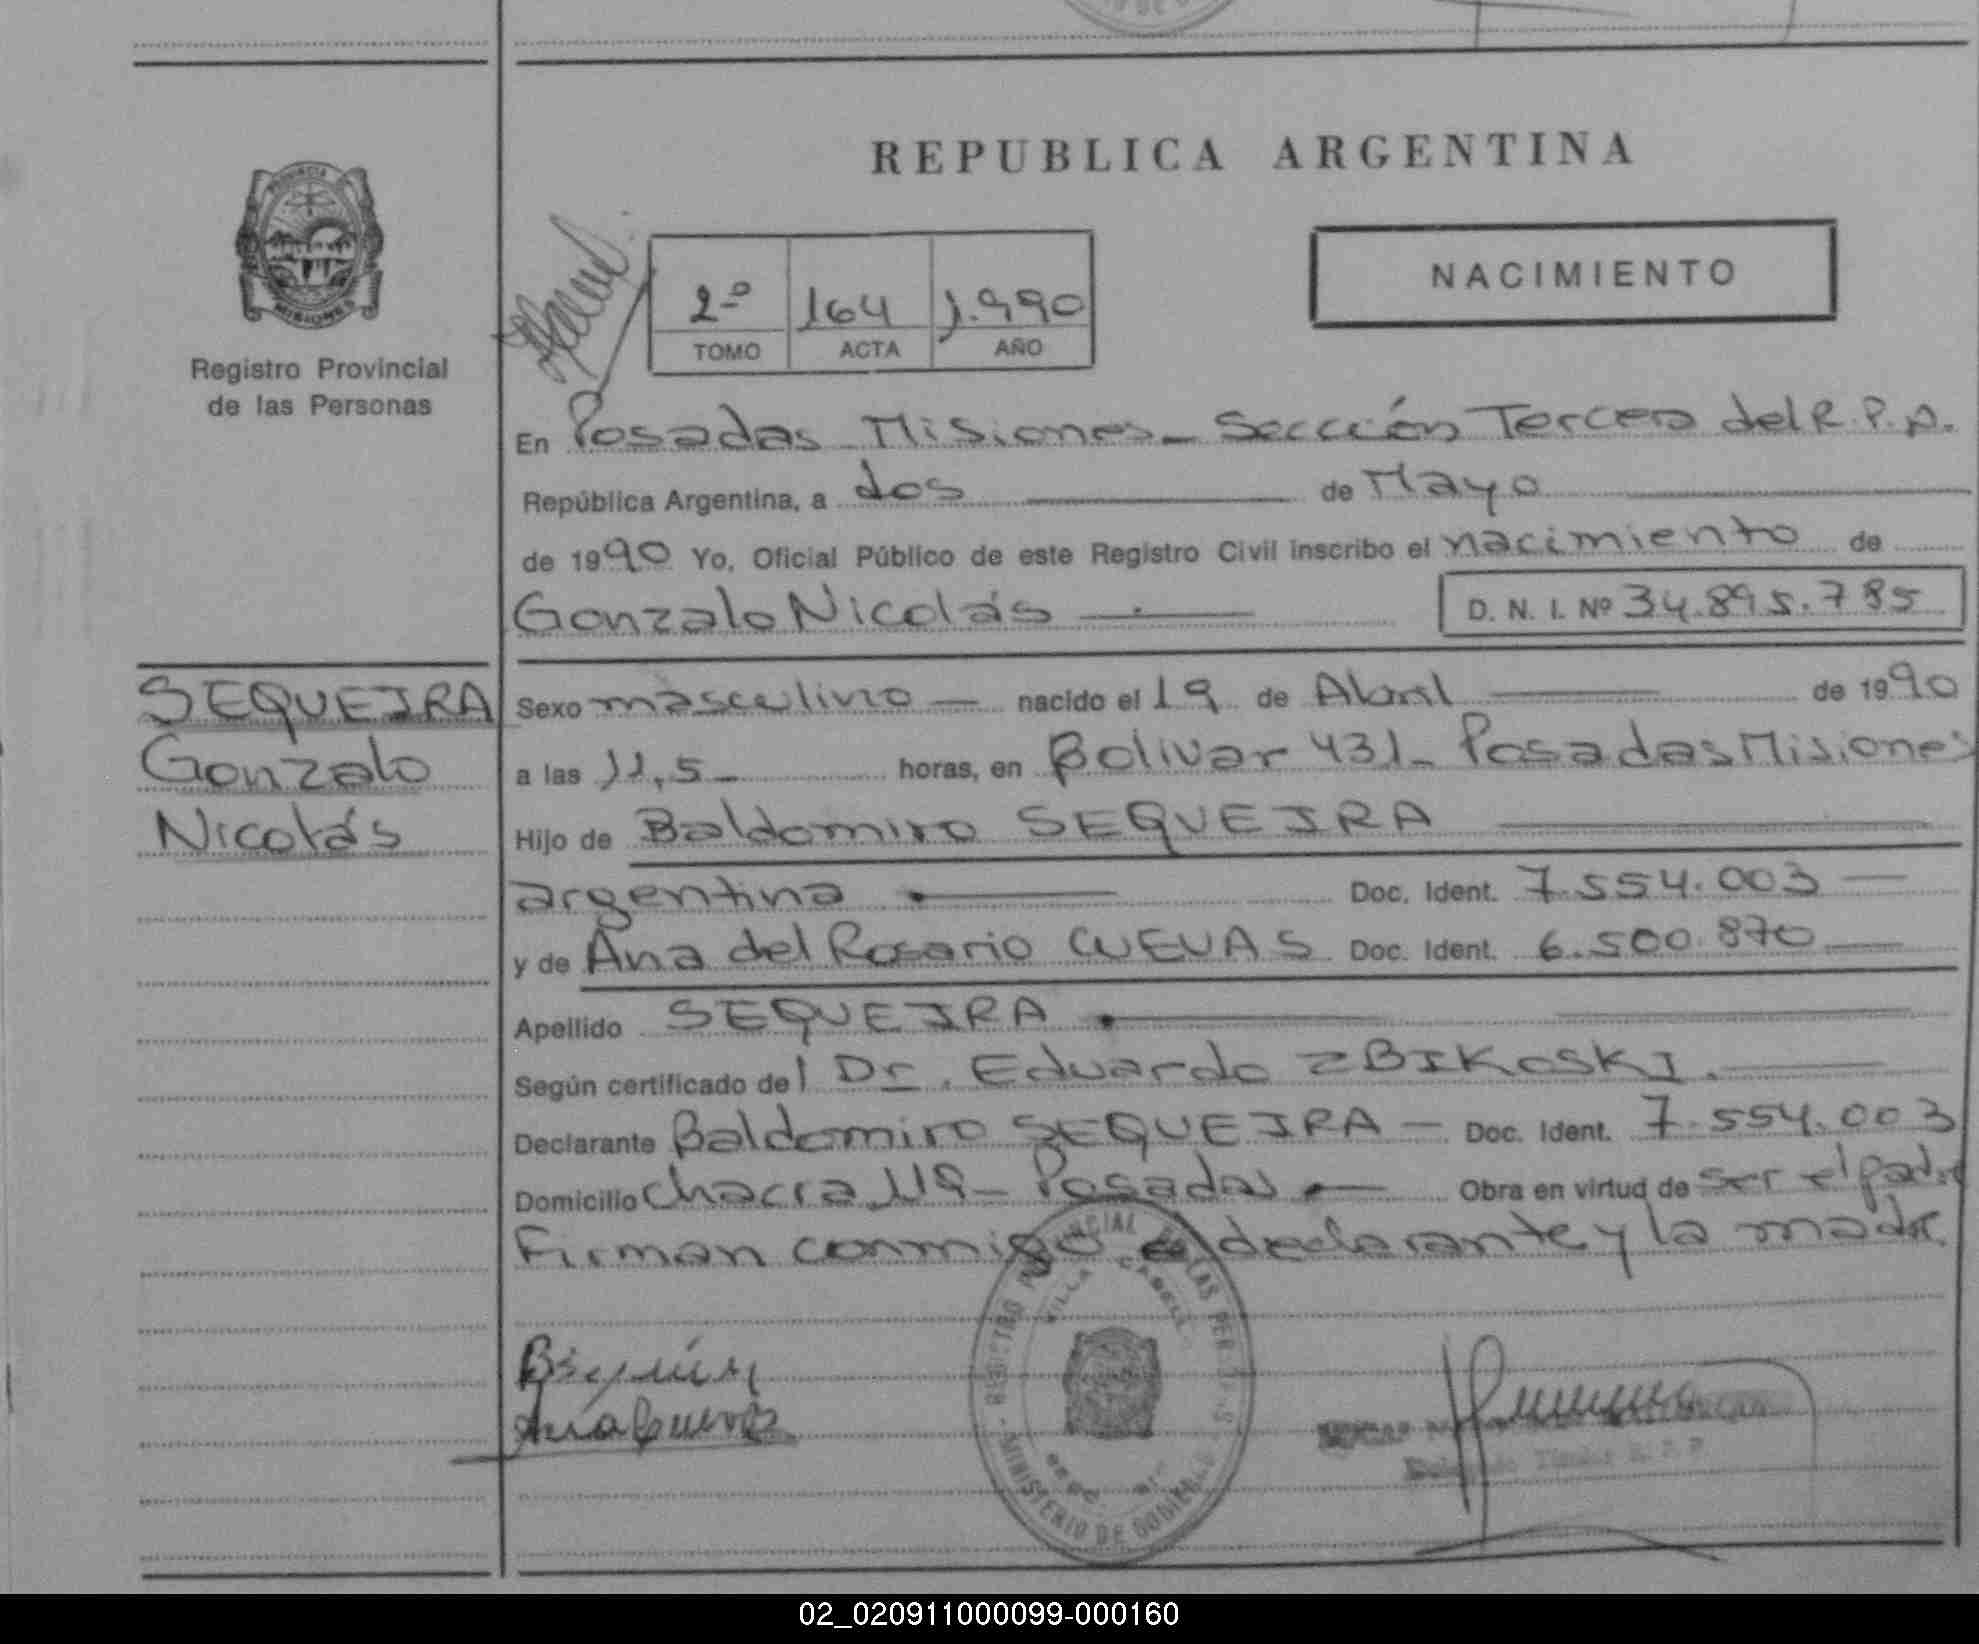 REPUBLICA ARGENTINA
PROVINCIA
MISIONES
Registro Provincial
de las Personas
2º 164 1.990
TOMO ACTA AÑO
NACIMIENTO
En Posadas Misiones - Sección Tercera del R. P. P.
República Argentina, a dos de Mayo
de 1990 Yo, Oficial Público de este Registro Civil inscribo el nacimiento de
Gonzalo Nicolás D. N. I. Nº 34.895.785
SEQUEIRA
Gonzalo
Nicolás
Sexo masculino nacido el 19 de Abril de 1990
a las 11,5 - horas, en Bolivar 431 - Posadas Misiones
Hijo de Baldomiro SEQUEIRA
argentina Doc. Ident. 7.554.003
y de Ana del Rosario CUEVAS Doc. Ident. 6.500.870
Apellido SEQUEIRA
Según certificado del Dr. Eduardo ZBIKOSKI.
Declarante Baldomiro SEQUEIRA - Doc. Ident. 7.554.003
Domicilio chacra 119 - Posadas Obra en virtud de ser el padre
Firman conmigo el declarante y la madre
REGISTRO PROVINCIAL DE LAS PERSONAS
VILLA CABELLO
MINISTERIO DE GOBIERNO
Ana Cuevas
Titular R. P. P.
02_020911000099-000160